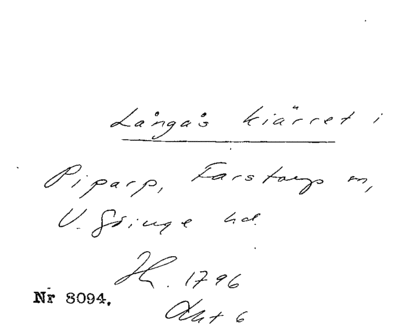 Långås kiärret i
Piparp, Farstorp sn,
V. Göinge hd.
1796
Nr 8094.
Akt 6